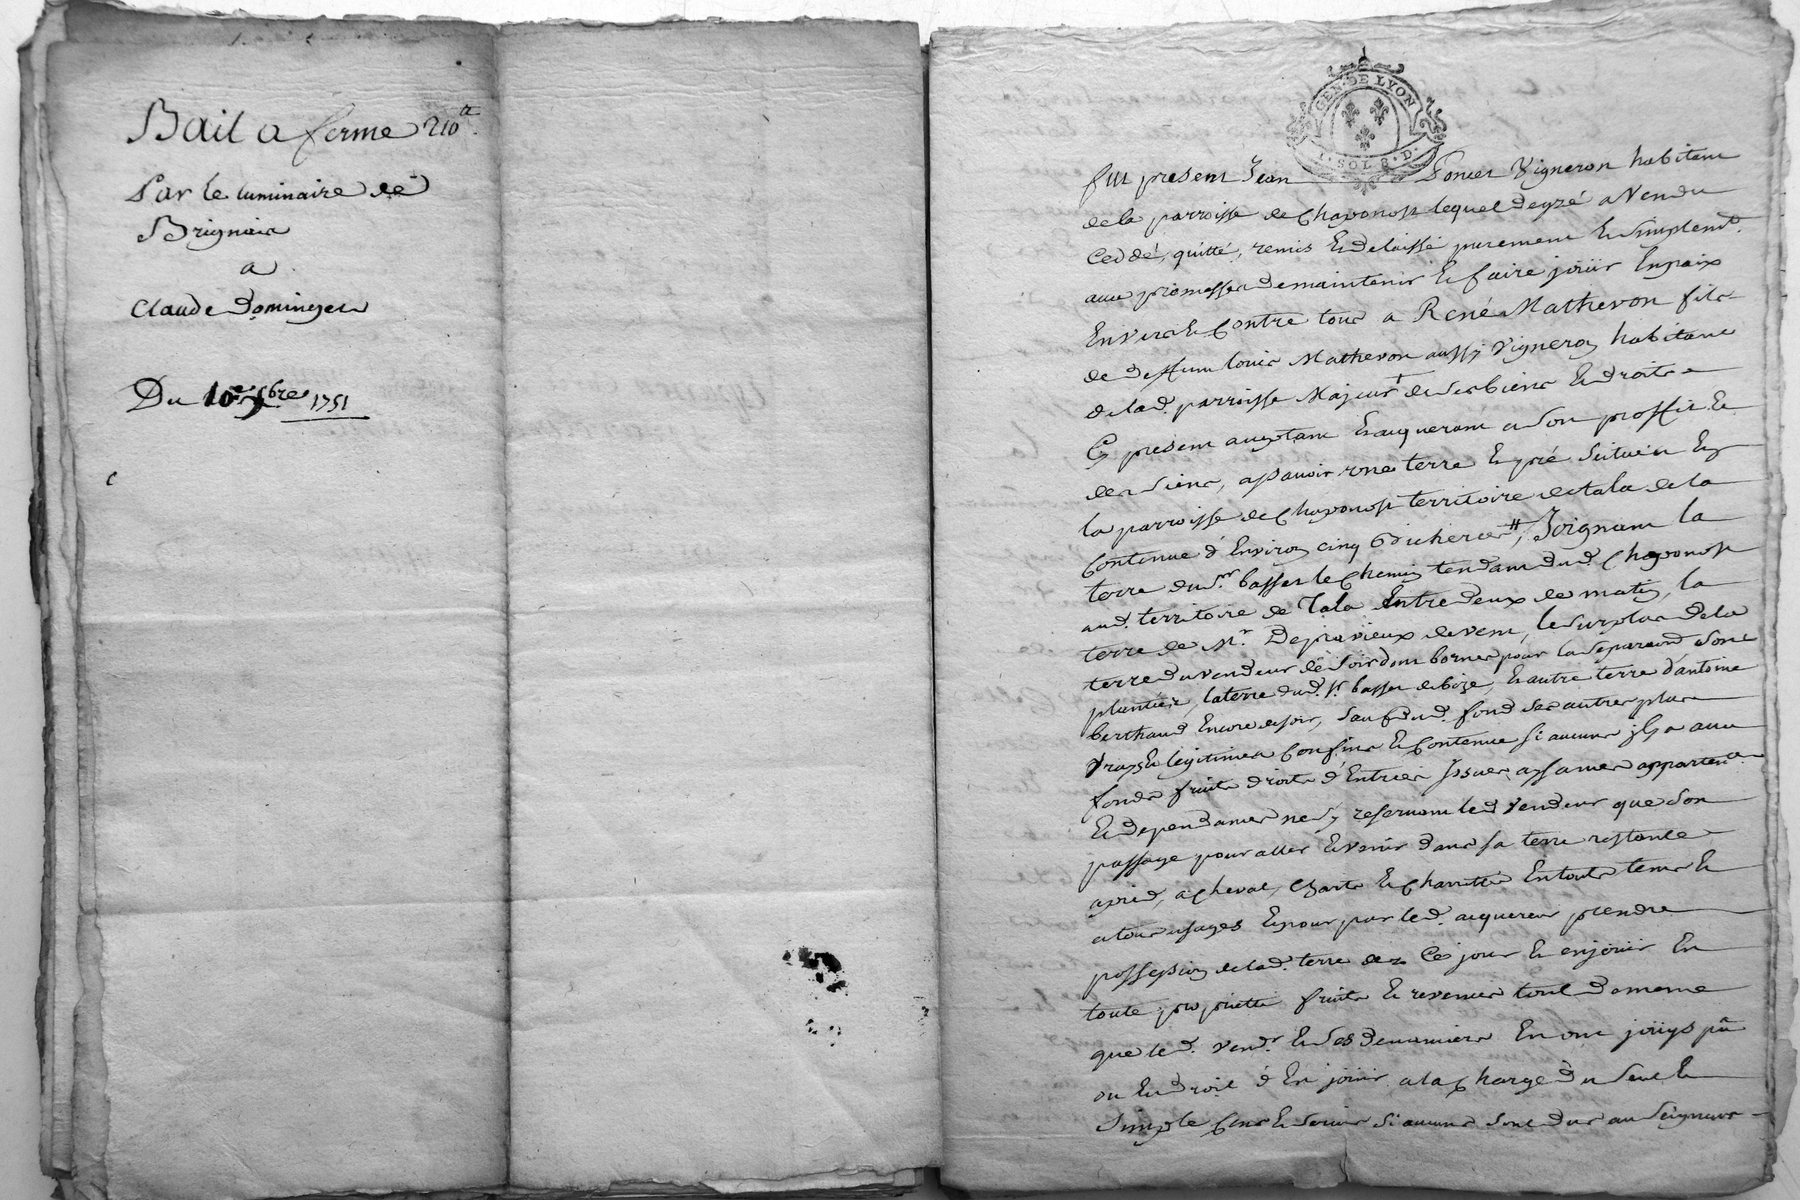 Bail a ferme 210ᵗᵗ
Par le luminaire de
Brignais
a
Claude Dominget
Du 10e xbre 1751
GEN. DE LYON
1. SOL 8. D.
fut present Jean Poncet Vigneron habitant
de la parroisse de Chaponost lequel de gré a Vendu
Ceddé, quitté, remis Et delaissé purement Et Simplemt.
avec promesse de maintenir Et faire joüir En paix
Envers Et Contre tous a René Mathevon fils
de deffunt louis Mathevon aussy Vigneron habitant
de lad. parroisse Majeur de ses biens Et droits
Cy present acceptant Et acquerant a Son proffit Et
des Siens, a Sçavoir une terre Et pré Scituée En
la parroisse de Chaponost territoire de tala de la
Contenue d'Environ cinq bicherées, Joignant la
terre du Sr. basset le Chemin tendant dud. Chaponost
aud. territoire de Tala Entre deux de matin, la
terre de Mr. Depravieux de vent, le Surplus de la
terre du vendeur de Soir dont bornes pour la Separaon Sont
plantées, la terre dud. Sr. basset de bize, Et autre terre d'antoine
berthaud Encore de soir, Sauf dud. fond Ses autres plus
Vrays Et legitimes Confins Et Contenue Si aucuns il y a avec
fonds fruits droits d'Entrées Issues, aysances appartences
Et dependances ne S'y reservant led Vendeur que Son
passage pour aller Et venir dans sa terre restante
a pied, a Cheval, Chars Et Charrette En tout tems Et
a tous usages Et pour par led. acquereur prendre
possession de lad. terre dez Ce jour Et en joüir En
toute proprieté fruits Et revenus tout de meme
que led. vendr. Et Ses devanciers En ont joüys pû
ou Eu droit d'En joüir a la Charge du Seul Et
Simple Cens Et Servis Si aucuns Sont dus au Seigneur